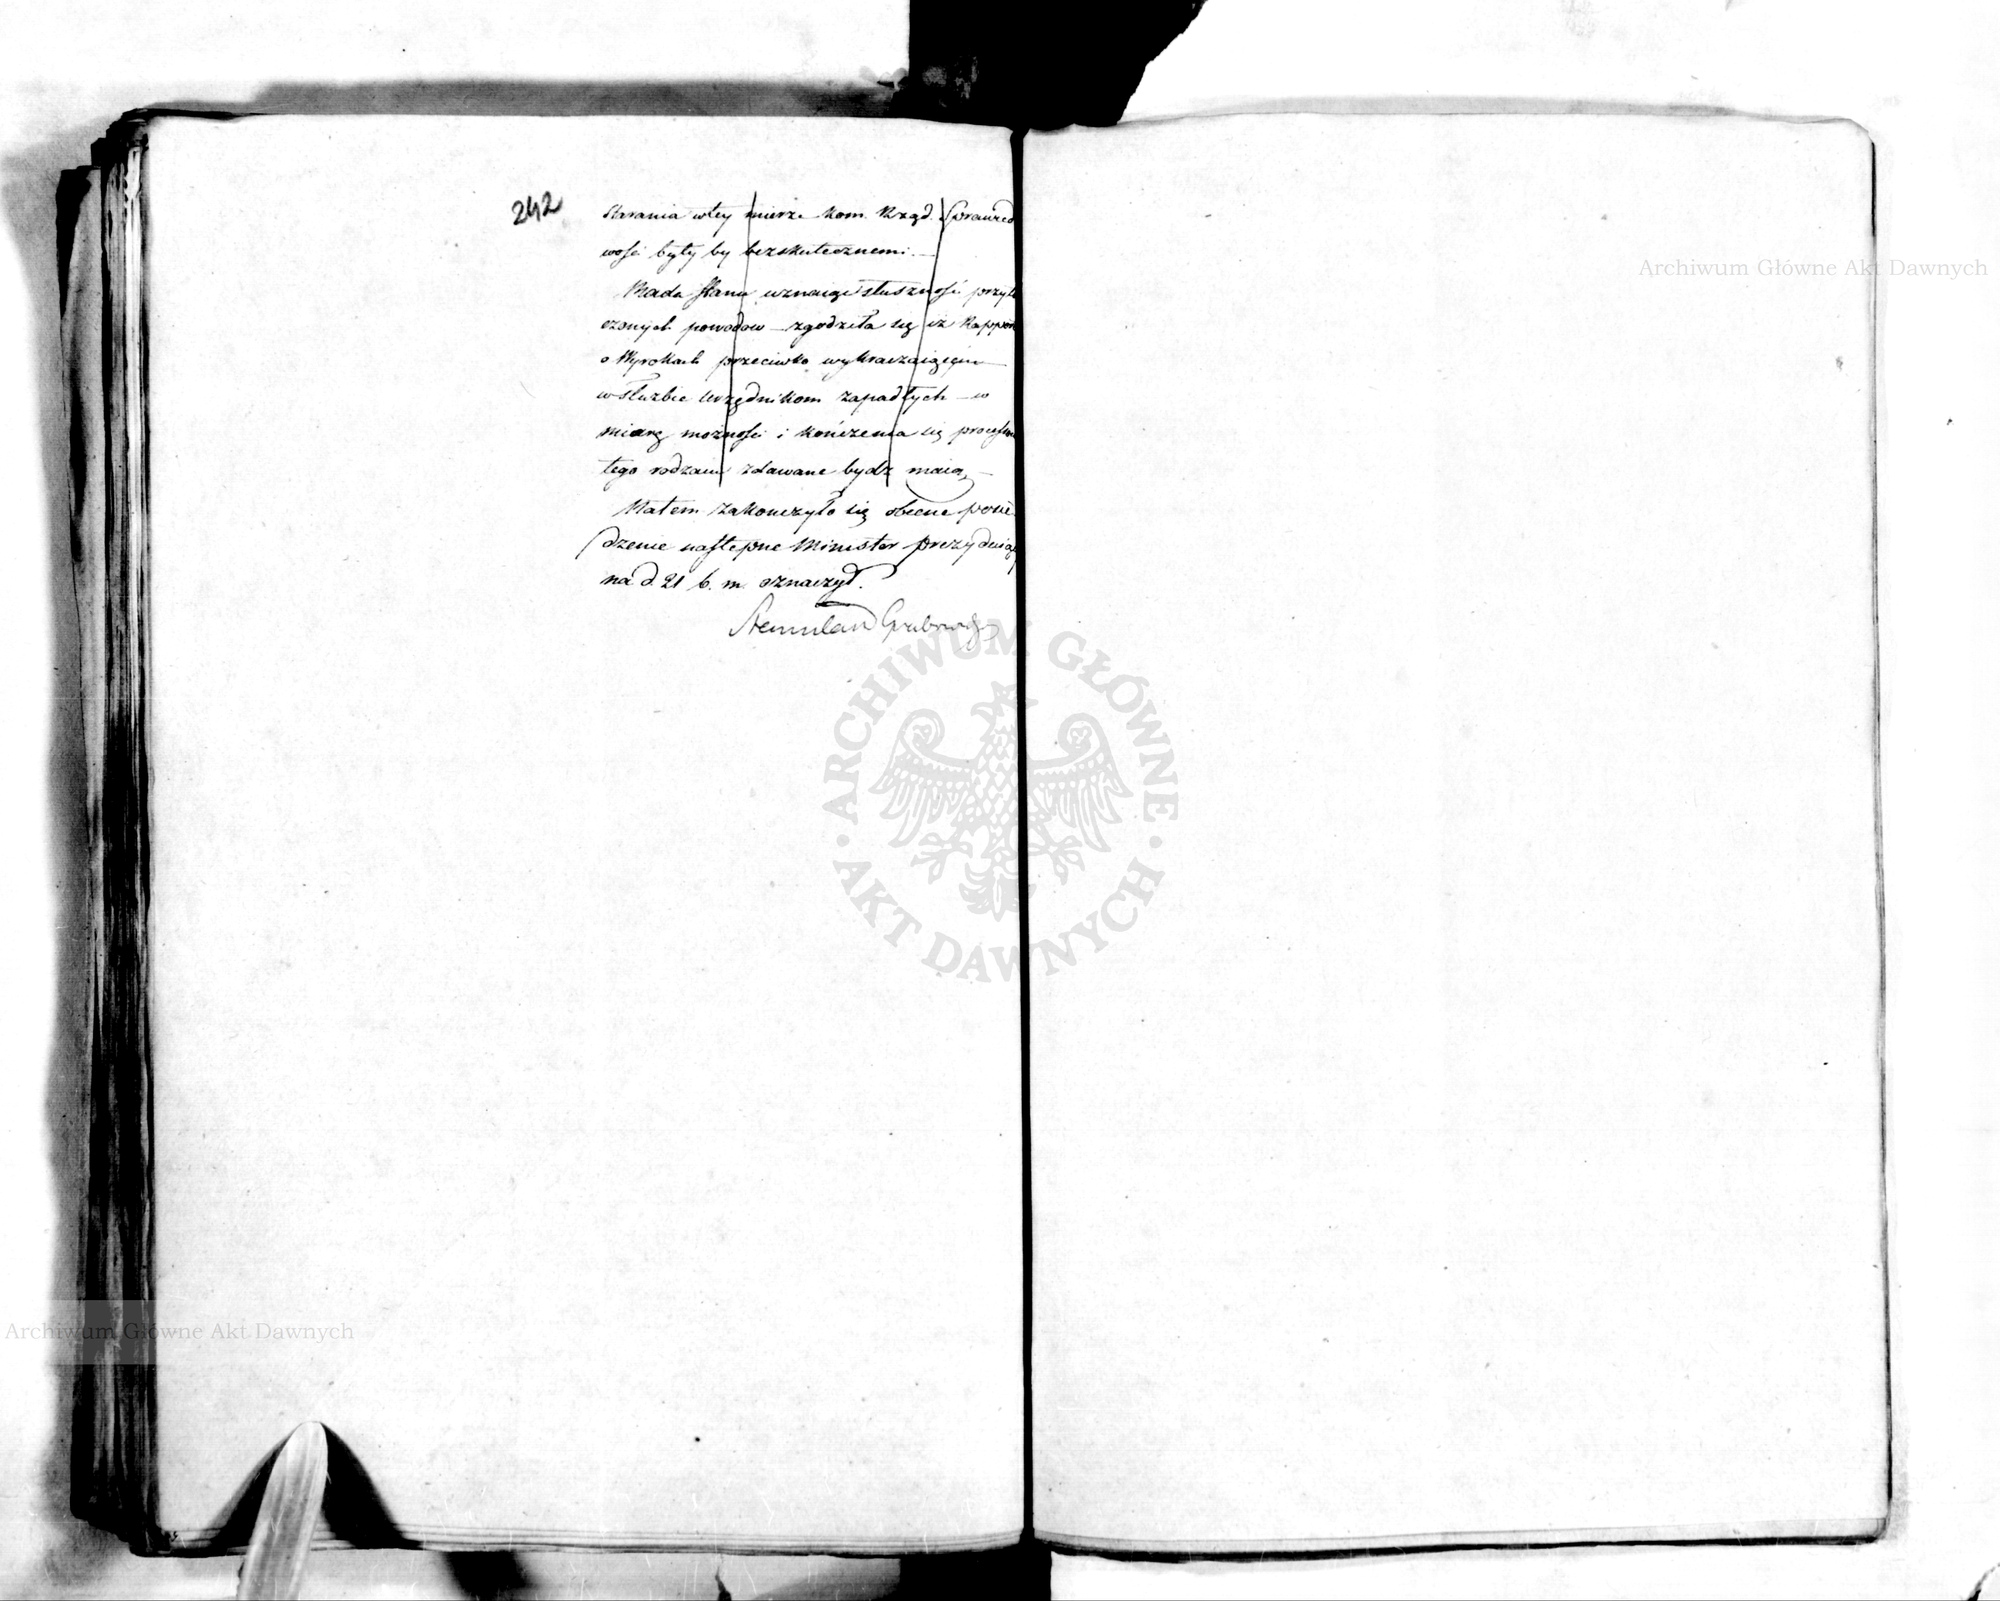 242
starania w tey mierze kom. Rząd. Sprawied
wości były by bezskutecznemi. —
Rada Stanu uznaiąc słuszność przyto
czonych powodow — zgodziła się iż Rappor
o Wyrokach przeciwko wykraczaiącym
w służbie Urzędnikom zapadłych — w
miarę możności i kończenia się processów
tego rodzaiu zdawane bydz maią. —
Na tem zakończyło się obecne posie
dzenie następne Minister prezyduiąc
na d. 21 b. m. oznaczył.
Stanisław Grabowski
Archiwum Główne Akt Dawnych
ARCHIWUM GŁÓWNE · AKT DAWNYCH ·
Archiwum Główne Akt Dawnych